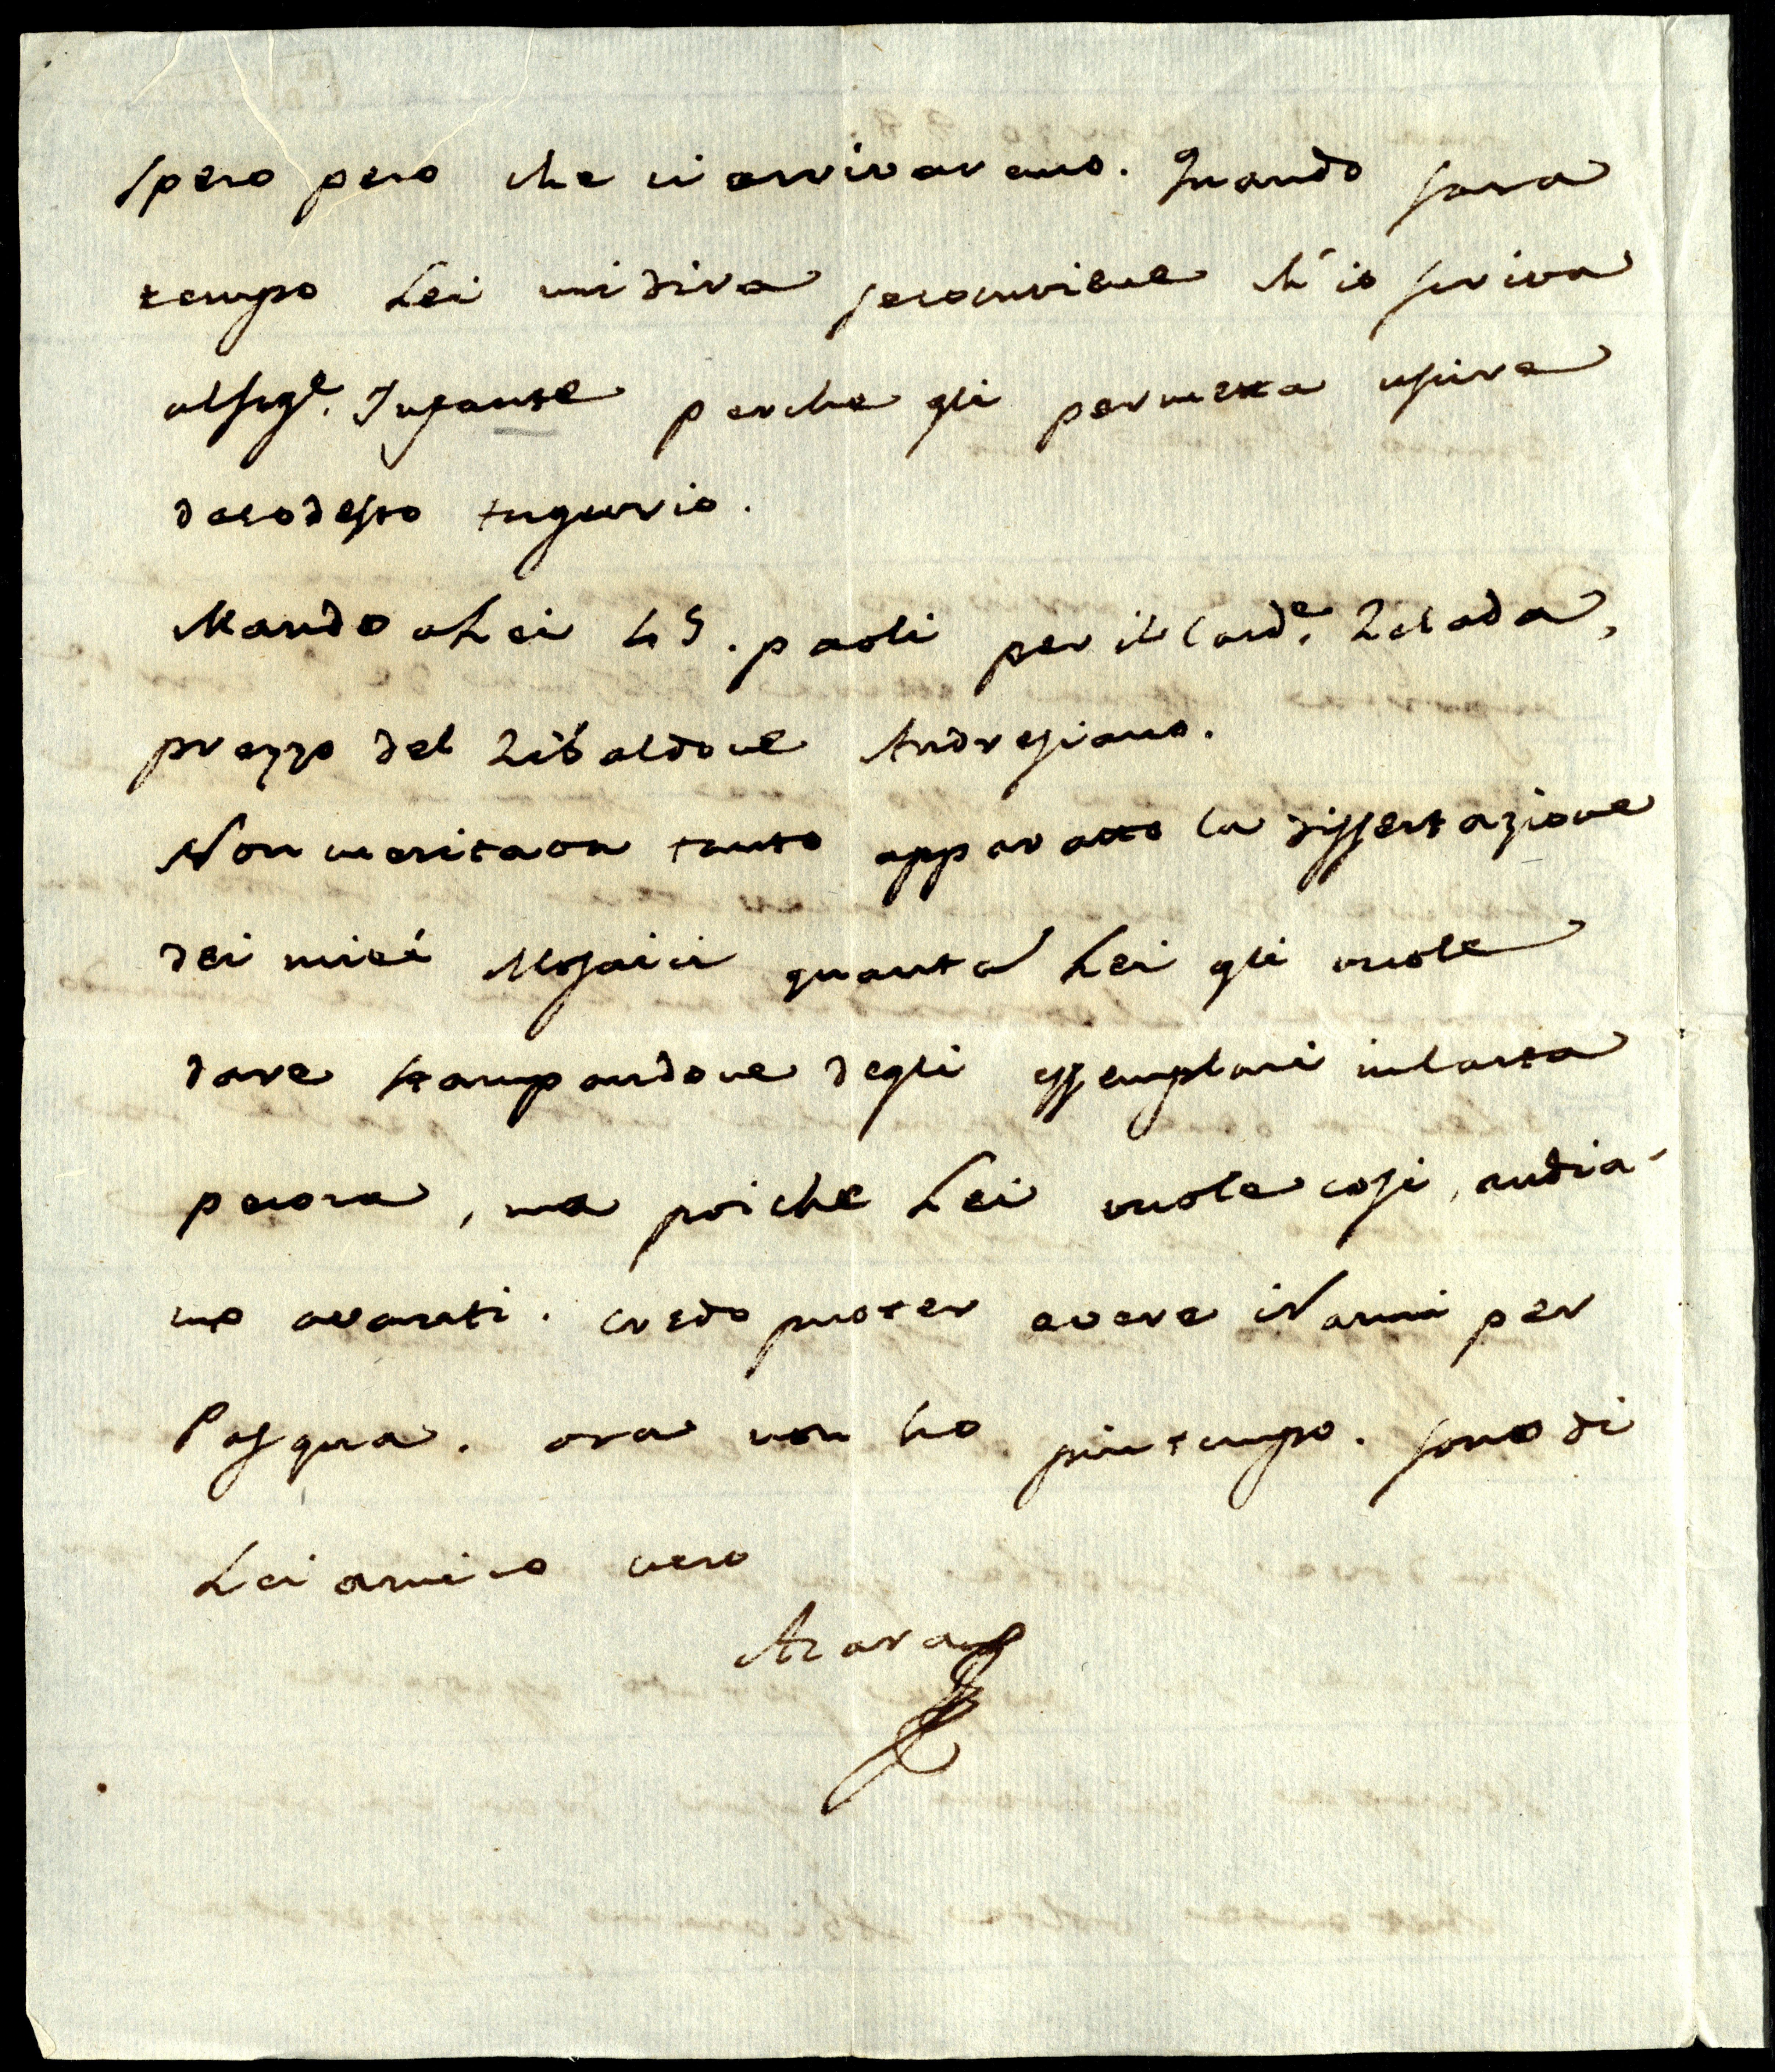 spero pero che ci arrivaremo. Quando sara
tempo Lei mi dira seconviene ch'io scriva
alsig.e Infante perche gli permetta uscire
dacodesto tugurio.
Mando aLei 45. paoli per il Card.e Zelada,
prezzo del Zibaldone Andresiano.
Non meritava tanto apparatto la dissertazione
dei miei Mosaici quanto Lei gli vuole
dare stampandone degli essemplari incarta
pecora, ma poiche Lei vuole cosi, andia-
mo avanti. Credo puoter avere iNanni per
Pasqua. ora non ho piu tempo. sono di
Lei amico vero
Azara